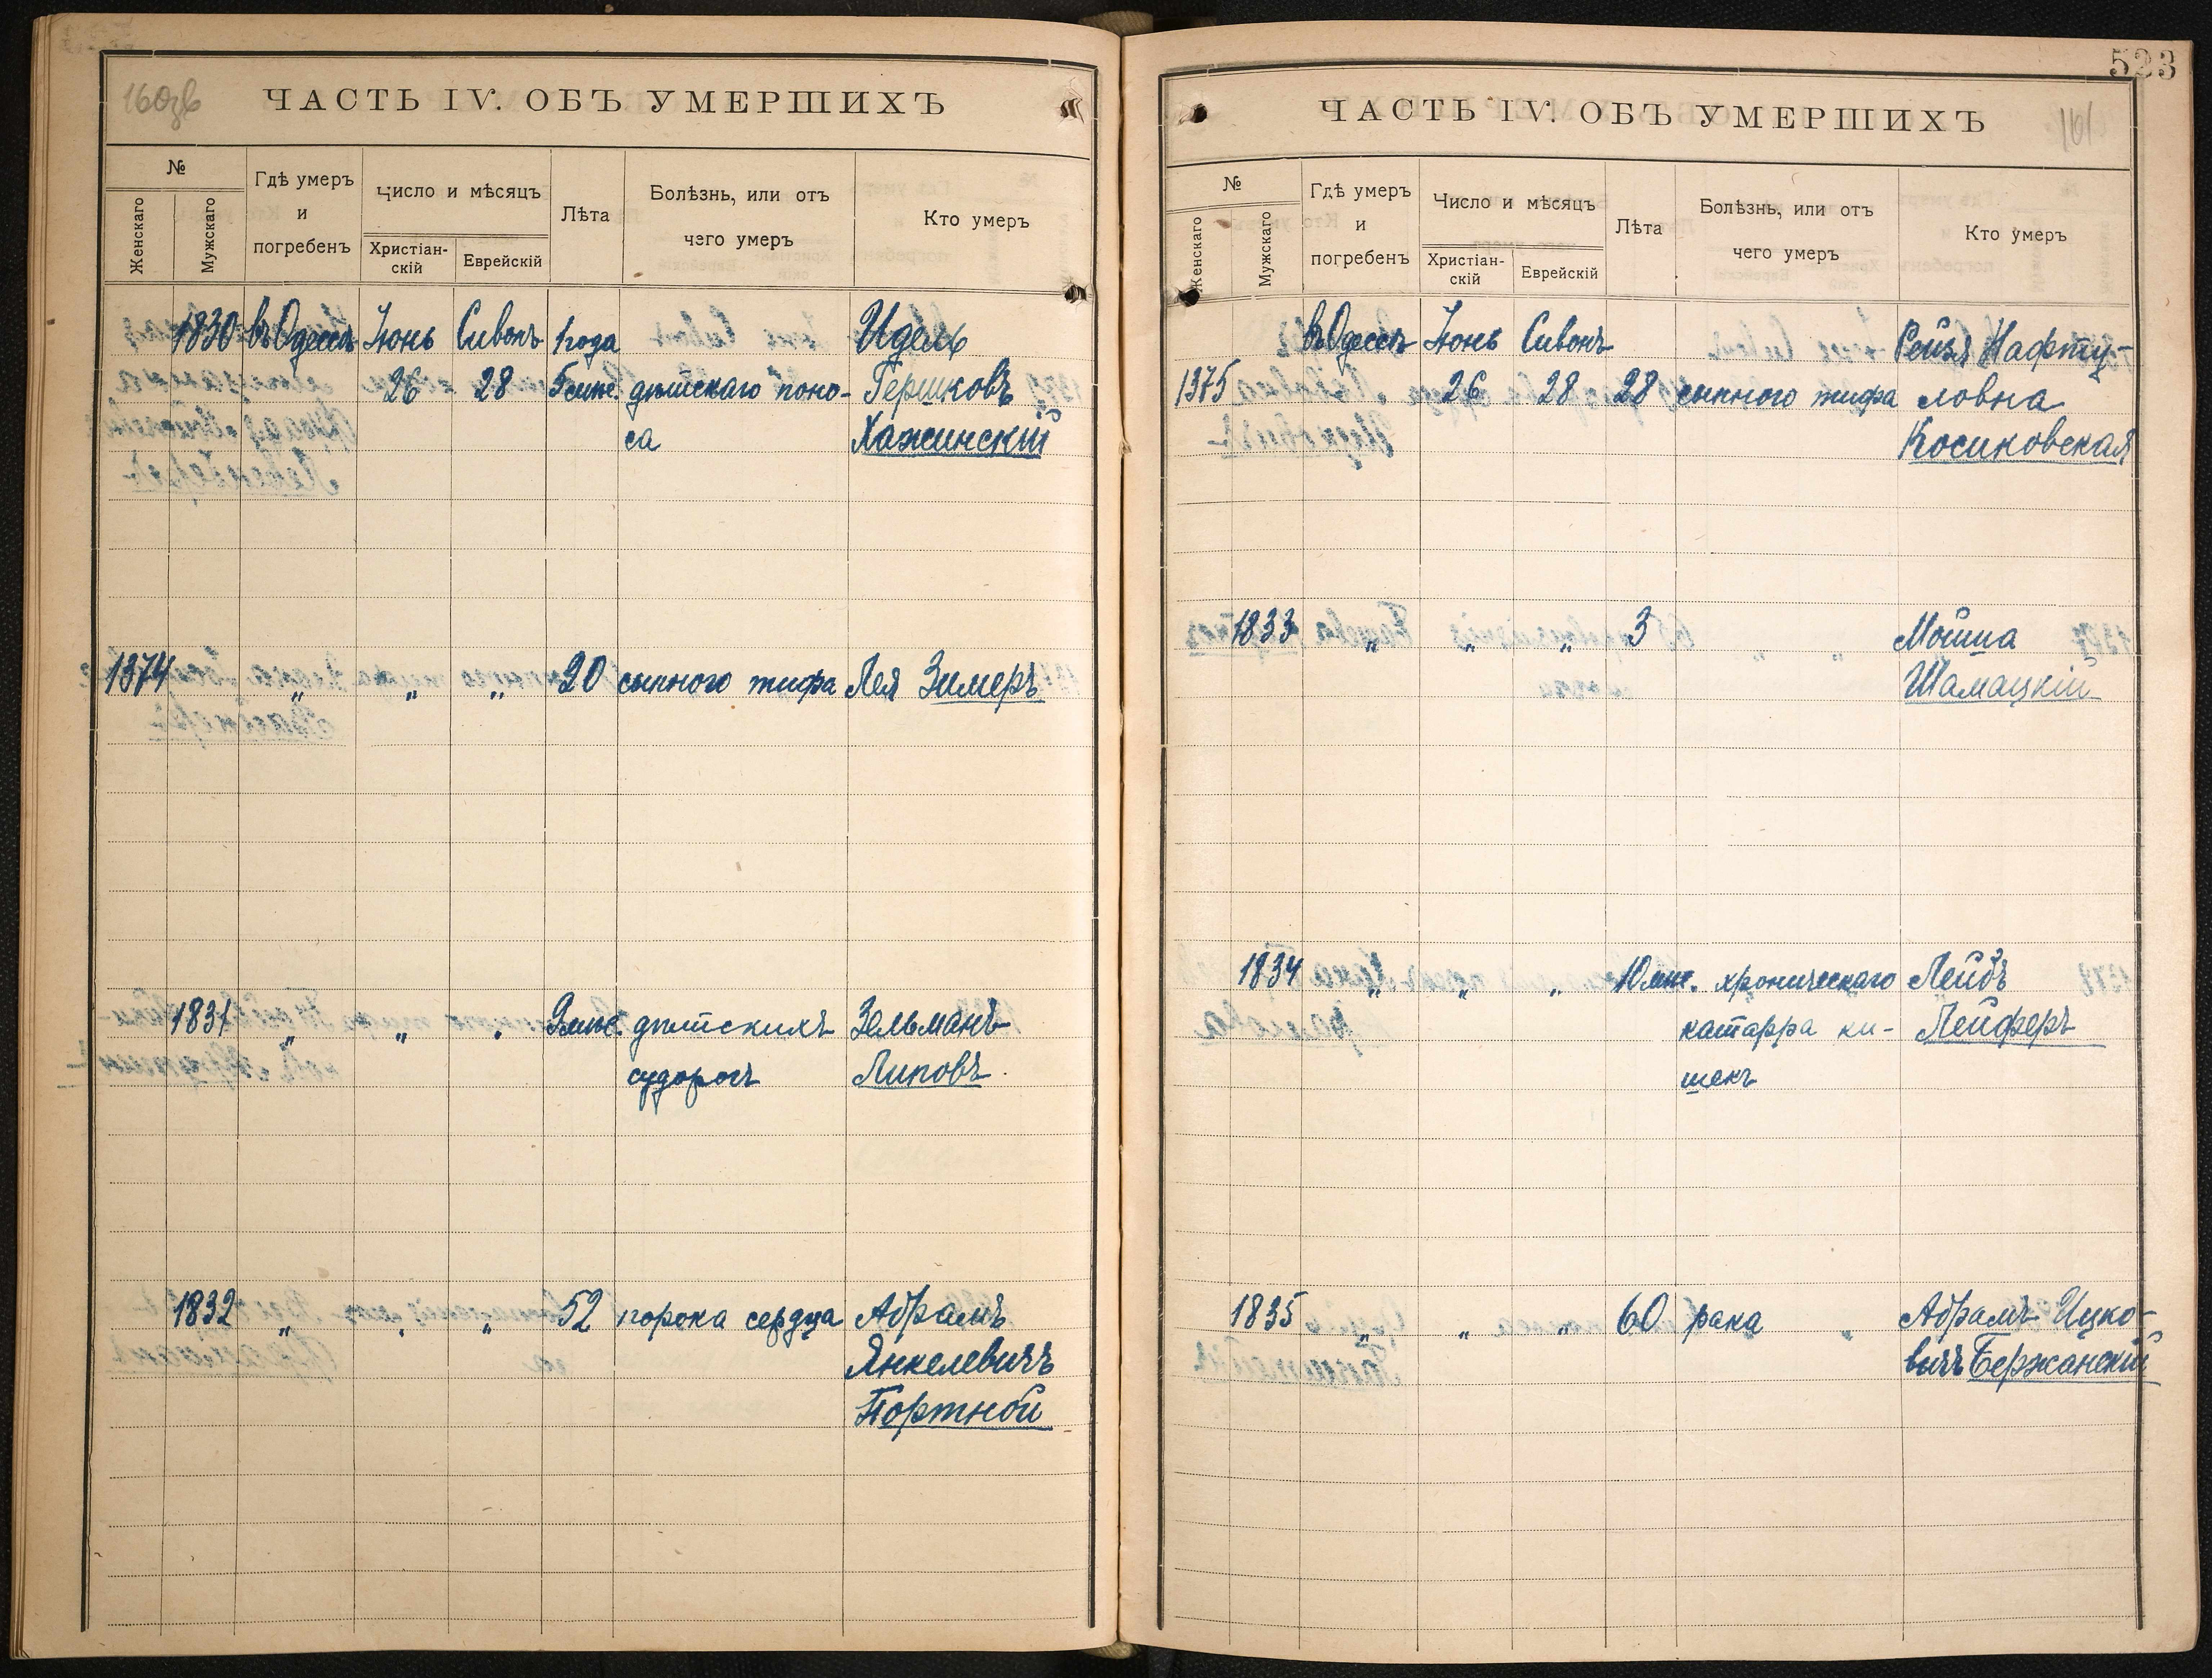 160об
ЧАСТЬ IV. ОБЪ УМЕРШИХЪ
№
Женскаго
Мужскаго
Гдѣ умеръ
и
погребенъ
Число и мѣсяцъ
Христіан-
скій
Еврейскій
Лѣта
Болѣзнь, или отъ
чего умеръ
Кто умеръ
1830 въ Одессѣ Іюнь Сивонъ 1 года Идель
26 28 5 мѣс. дѣтскаго поно- Гершковъ
са Хажинскій
1374 „ „ „ 20 сыпного тифа Лея Зимеръ
1831 „ „ „ 9 мѣс. дѣтскихъ Зельманъ
судорогъ Липовъ
1832 „ „ „ 52 порока сердца Абрамъ
Янкелевичъ
Портной
523
161
ЧАСТЬ IV. ОБЪ УМЕРШИХЪ
№
Женскаго
Мужскаго
Гдѣ умеръ
и
погребенъ
Число и мѣсяцъ
Христіан-
скій
Еврейскій
Лѣта
Болѣзнь, или отъ
чего умеръ
Кто умеръ
въ Одессѣ Іюнь Сивонъ Рейзя Нафту-
1375 26 28 28 сыпного тифа ловна
Косиковская
1833 „ „ „ 3 Мойша
Шамацкій
1834 „ „ „ 10 мѣс. хроническаго Лейбъ
катарра ки- Лейферъ
шекъ
1835 „ „ „ 60 рака Абрамъ Ицко-
вичъ Бержанскій